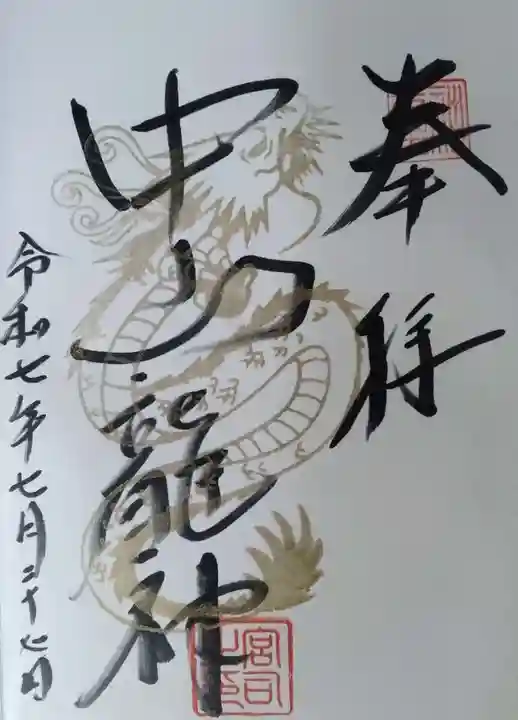 奉拝
中山龍神
令和七年七月二十七日
宮司
之印